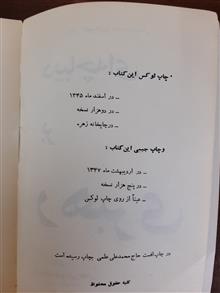 · چاپ لوکس این کتاب :
ــ در اسفند ماه ۱۳۴۵
ــ در دو هزار نسخه
ــ در چاپخانه زهره
و چاپ جیبی این کتاب :
ــ در اردیبهشت ماه ۱۳۴۷
ــ در پنج هزار نسخه
ــ عیناً از روی چاپ لوکس
در چاپ افست حاج محمدعلی علمی بچاپ رسیده است
کلیه حقوق محفوظ